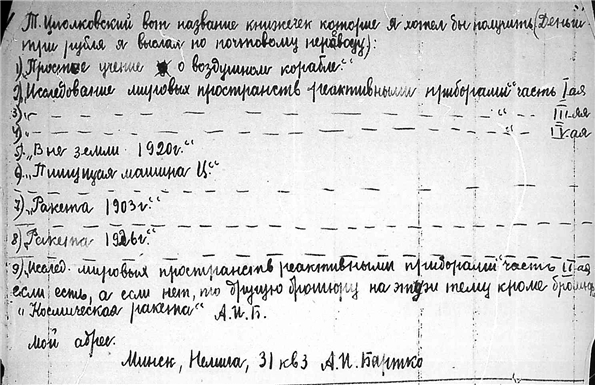 Т. Циолковский вот название книжечек которые я хотел бы получить (Деньги
три рубля я выслал по почтовому переводу):
1) „Простое учение о воздушном корабле.“
2) „Исследование мировых пространств реактивными приборами“ часть I ая
3) „ — — — — — — — “ — III-яя
4) „ — — — — — — — “ — IV-ая
5) „Вне земли 1920г.“
6) „Пишущая машина Ц.“
7) „Ракета 1903г.“
8) „Ракета 1926г.“
9) „Исслед. мировых пространств реактивными приборами“ часть II ая
если есть, а если нет, то другую брошюру на эту тему кроме
„Космическая ракета“ А.И.Б.
Мой адрес:
Минск, Немига, 31 кв 3 А.И. Бартко